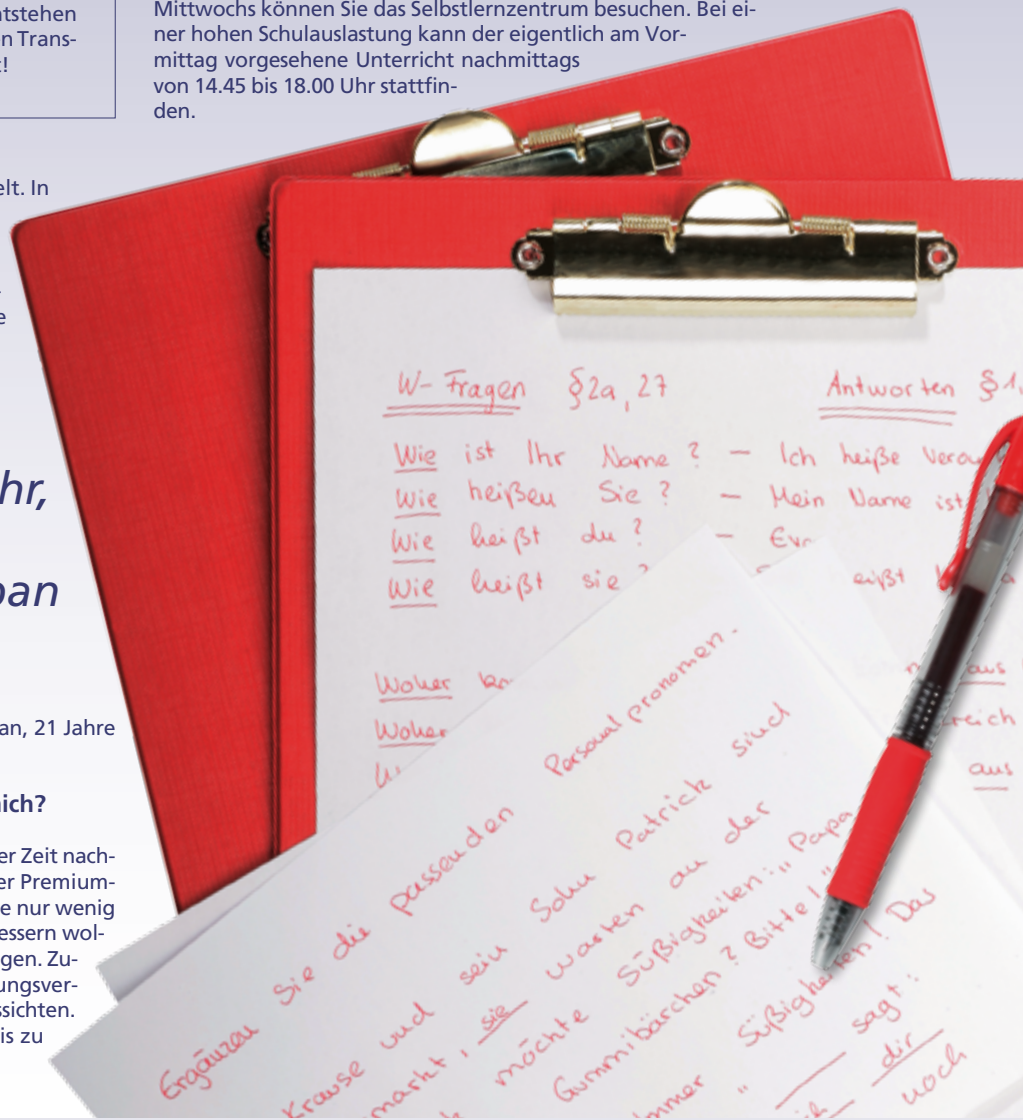 ntstehen
n Trans-
!
Mittwochs können Sie das Selbstlernzentrum besuchen. Bei ei-
ner hohen Schulauslastung kann der eigentlich am Vor-
mittag vorgesehene Unterricht nachmittags
von 14.45 bis 18.00 Uhr stattfin-
den.
elt. In
e
hr,
pan
an, 21 Jahre
nich?
er Zeit nach-
er Premium-
e nur wenig
essern wol-
gen. Zu-
ungsver-
ssichten.
is zu
W- Fragen §2a, 27
Antworten §1,
Wie ist Ihr Name? – Ich heiße Vero
Wie heißen Sie? – Mein Name ist
Wie heißt du? –
Wie heißt sie? eißt
Woher
Woher
aus
reich
aus
Ergänzen Sie die passenden Personalpronomen.
Krause und sein Sohn Patrick sind
markt, sie warten an der
möchte Süßigkeiten: „Papa
Gummibärchen? Bitte!“
mmer Süßigkeiten! Das
sagt:
dir
noch